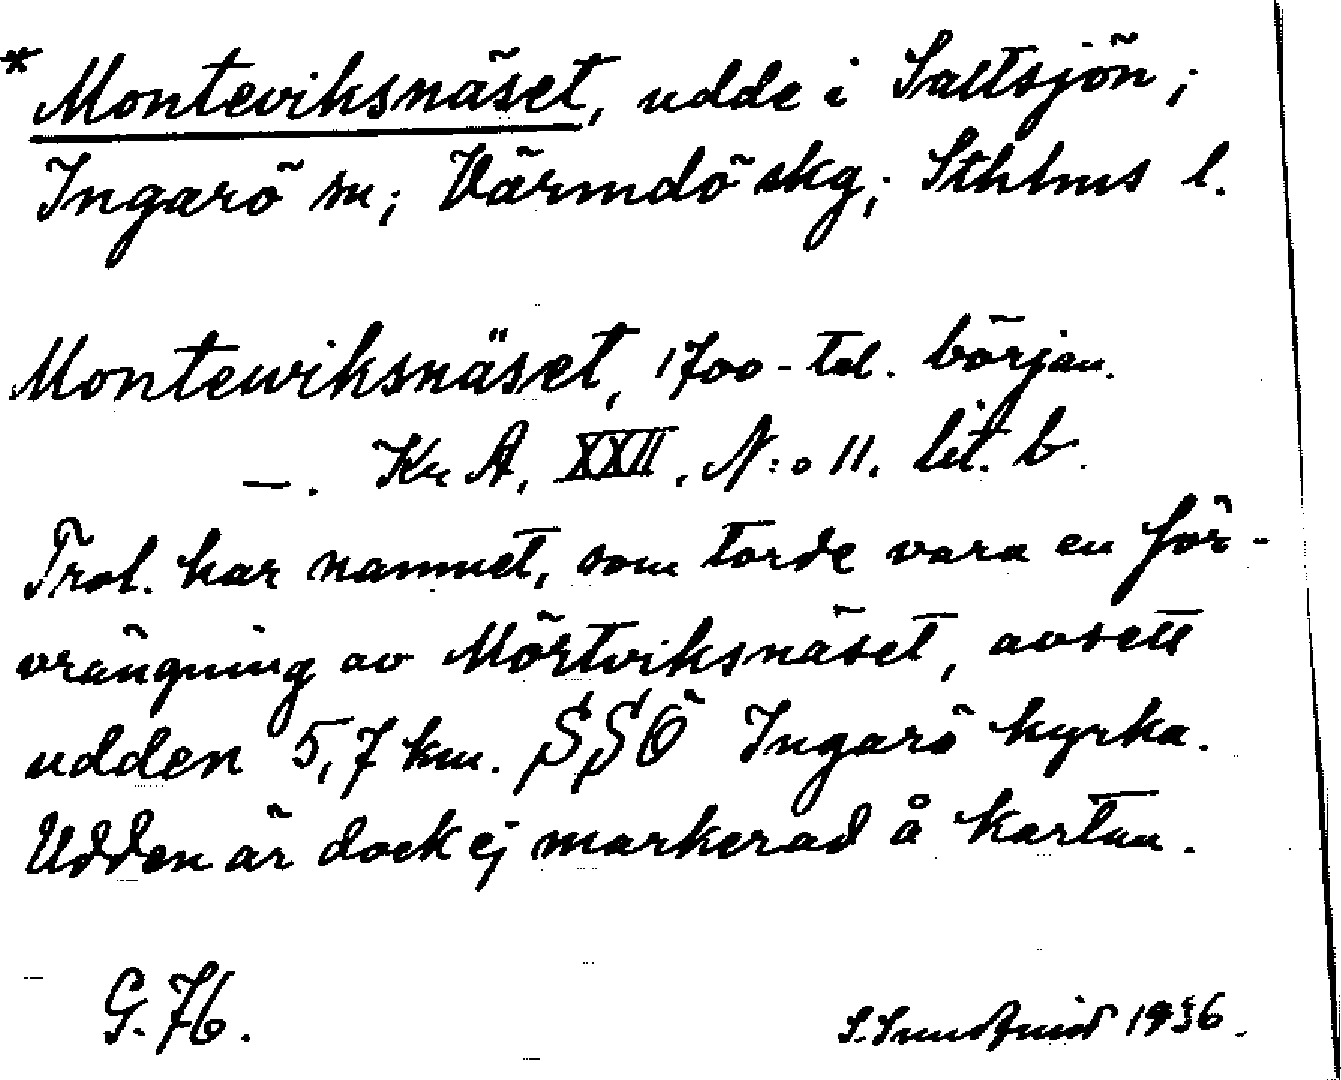 * Monteviksnäset, udde i Saltsjön;
Ingarö sn; Värmdö skg; Sthlms l.
Montewiksnäset, 1700-tal. början.
—. Kr A, XXII, N:o 11. lit. b.
Trol. har namnet, som torde vara en för-
vrängning av Mörtviksnäset, avsett
udden 5,7 km. SSÖ Ingarö kyrka.
Udden är dock ej markerad å kartan.
G. 76.
S. Sundqvist 1936.